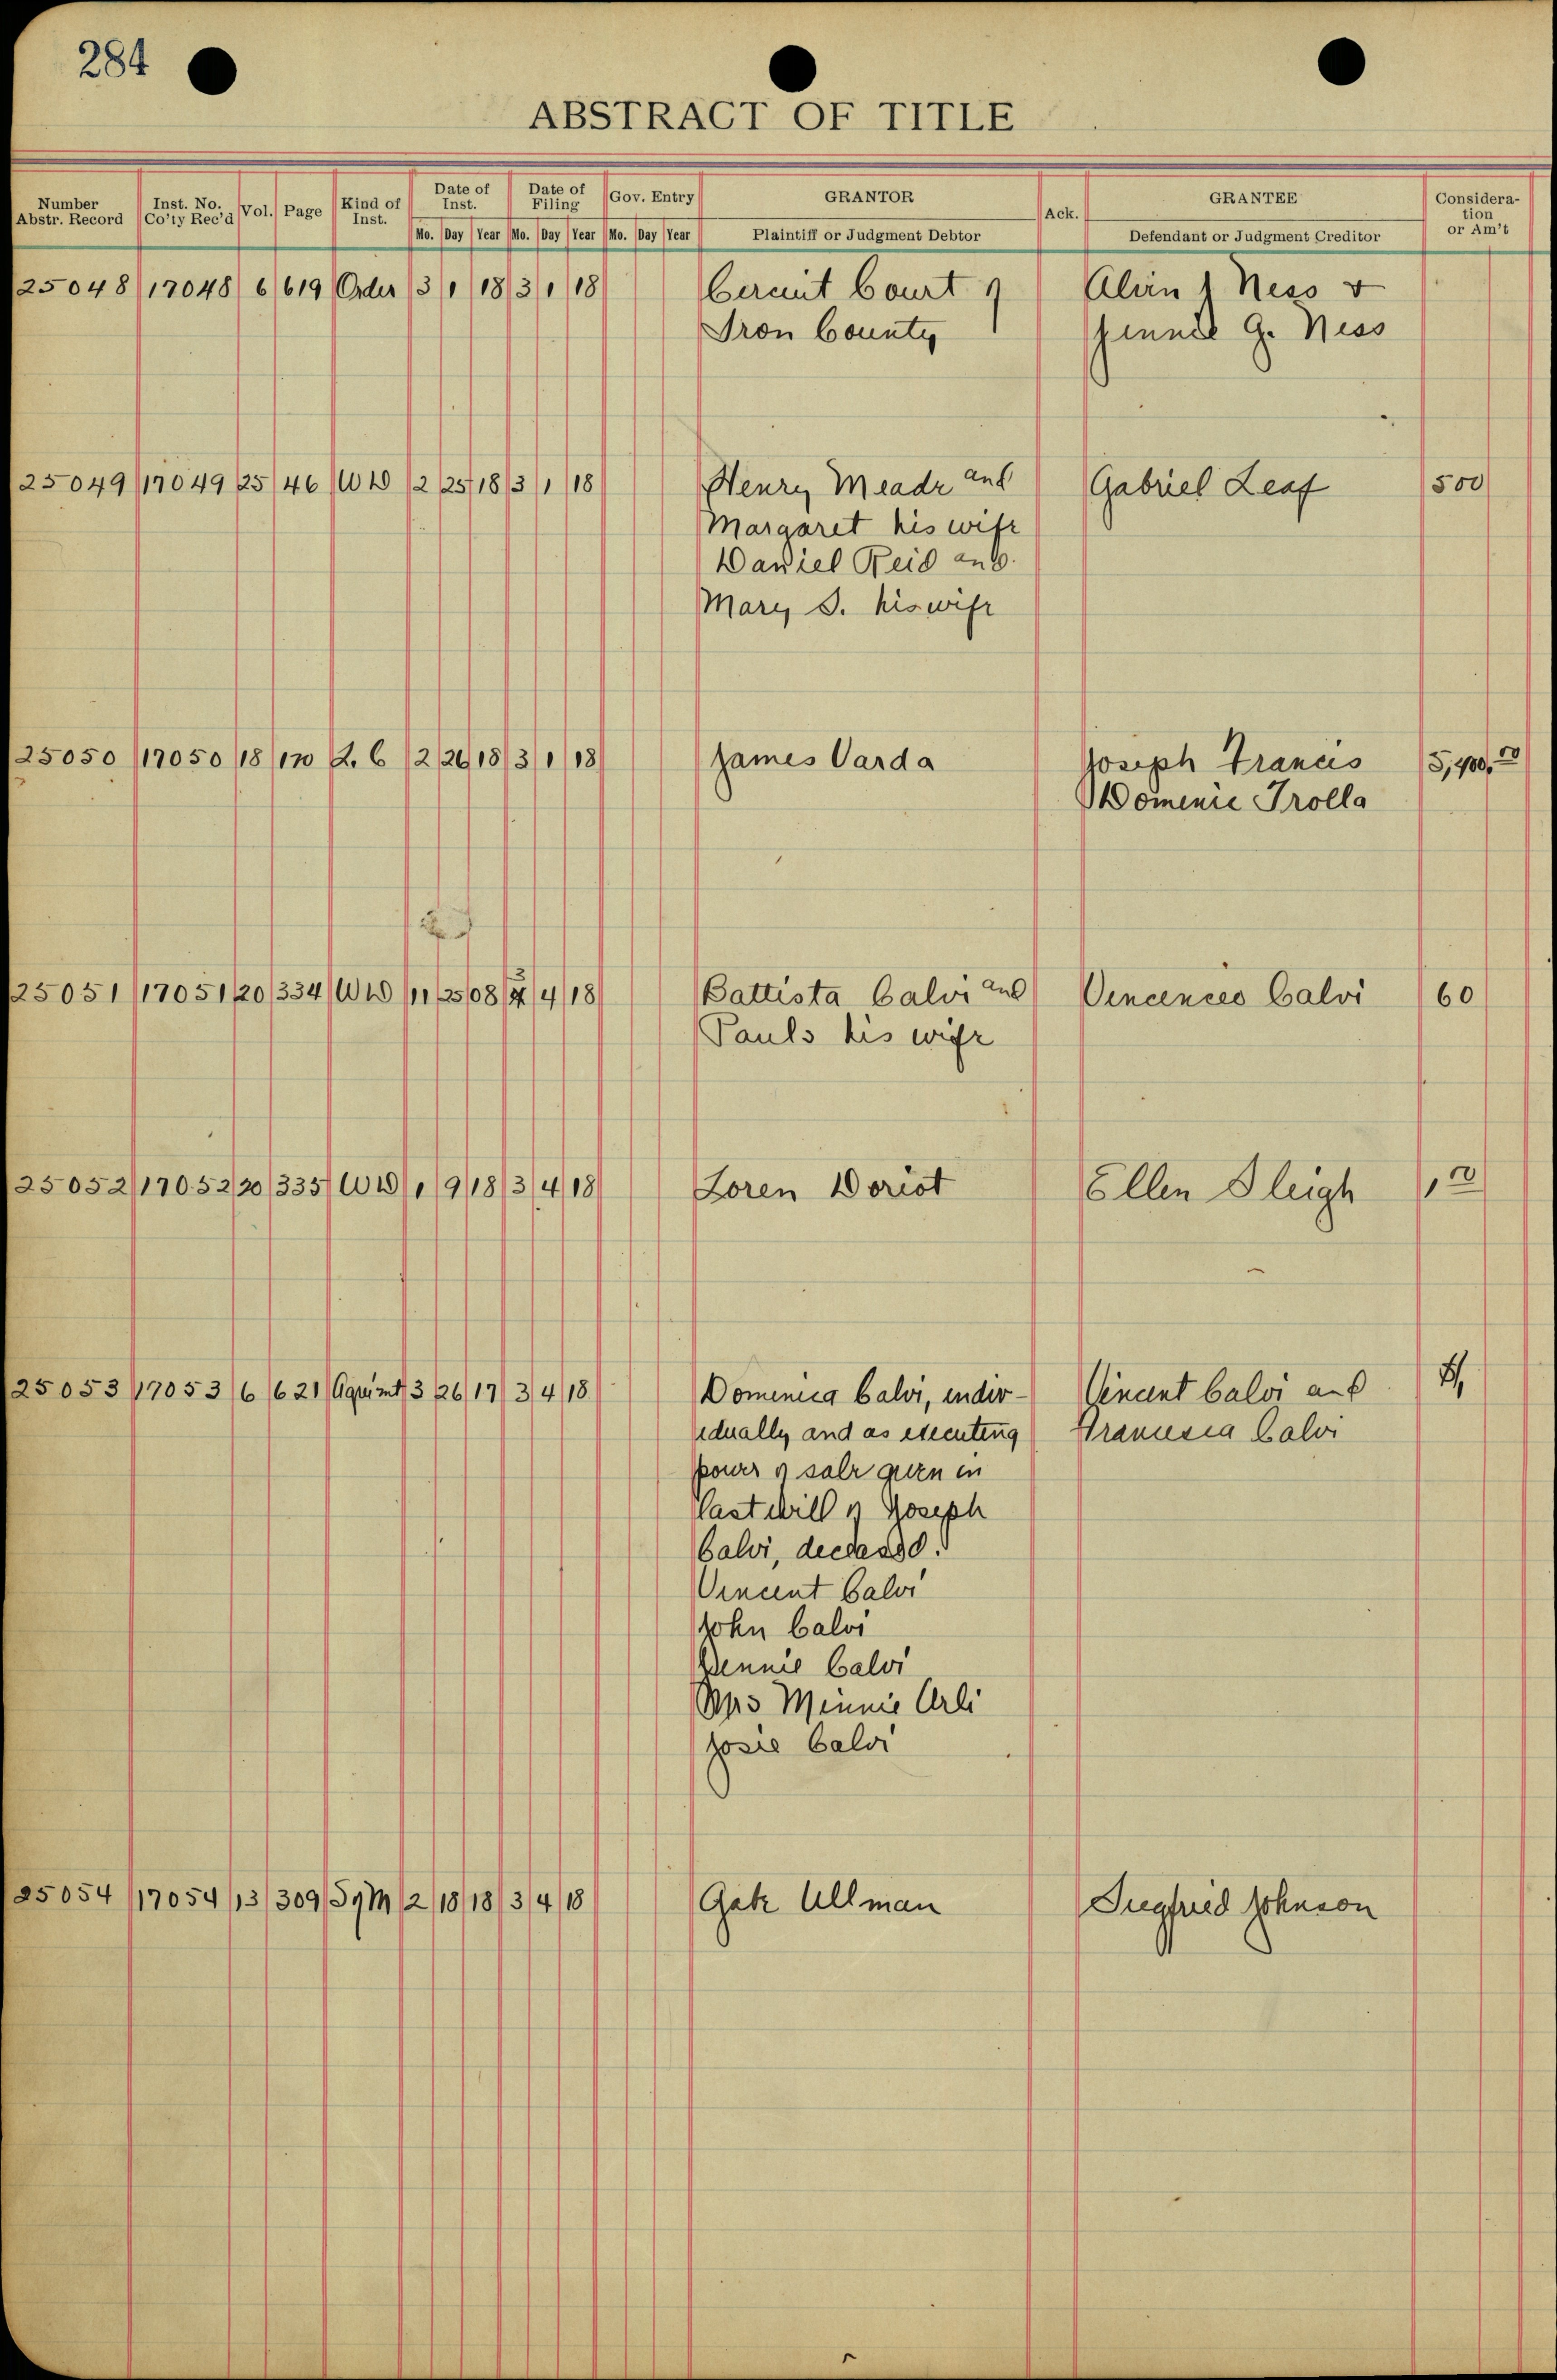 284
ABSTRACT OF TITLE
Number Abstr. Record Inst. No. Co'ty Rec'd Vol. Page Kind of Inst. Date of Inst. Date of Filing Gov. Entry GRANTOR Ack. GRANTEE Considera-tion or Am't
Mo. Day Year Mo. Day Year Mo. Day Year Plaintiff or Judgment Debtor Defendant or Judgment Creditor
25048 17048 6 619 Order 3 1 18 3 1 18 Circuit Court of Ness &
Iron County Jennie G. Ness
25049 17049 25 46 WD 2 25 18 3 1 18 Henry Meade and Gabriel Leaf 500
Margaret his wife
Daniel Reid and
Mary S. his wife
25050 17050 18 170 L.C 2 26 18 3 1 18 James Varda Joseph Francis 5,400.00
Domenic Trolla
25051 17051 20 334 WD 11 25 08 3 4 18 Battista Calvi and Calvi 60
Pauls his wife
25052 17052 20 335 WD 1 9 18 3 4 18 Loren Doriot Ellen Sleigh 1.00
25053 17053 6 621 Agrimt 3 26 17 3 4 18 Dominica Calvi, indiv- Vincent Calvi and
idually and as executing Calvi
power of sale given in
last will of Joseph
Calvi, deceased.
Vincent Calvi
John Calvi
Jennie Calvi
Mrs Minnie Arli
Josie Calvi
25054 17054 13 309 S of M 2 18 18 3 4 18 Gate Ullman Siegfried Johnson